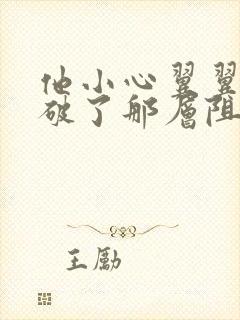 他小心翼翼
破了那层阻
王励